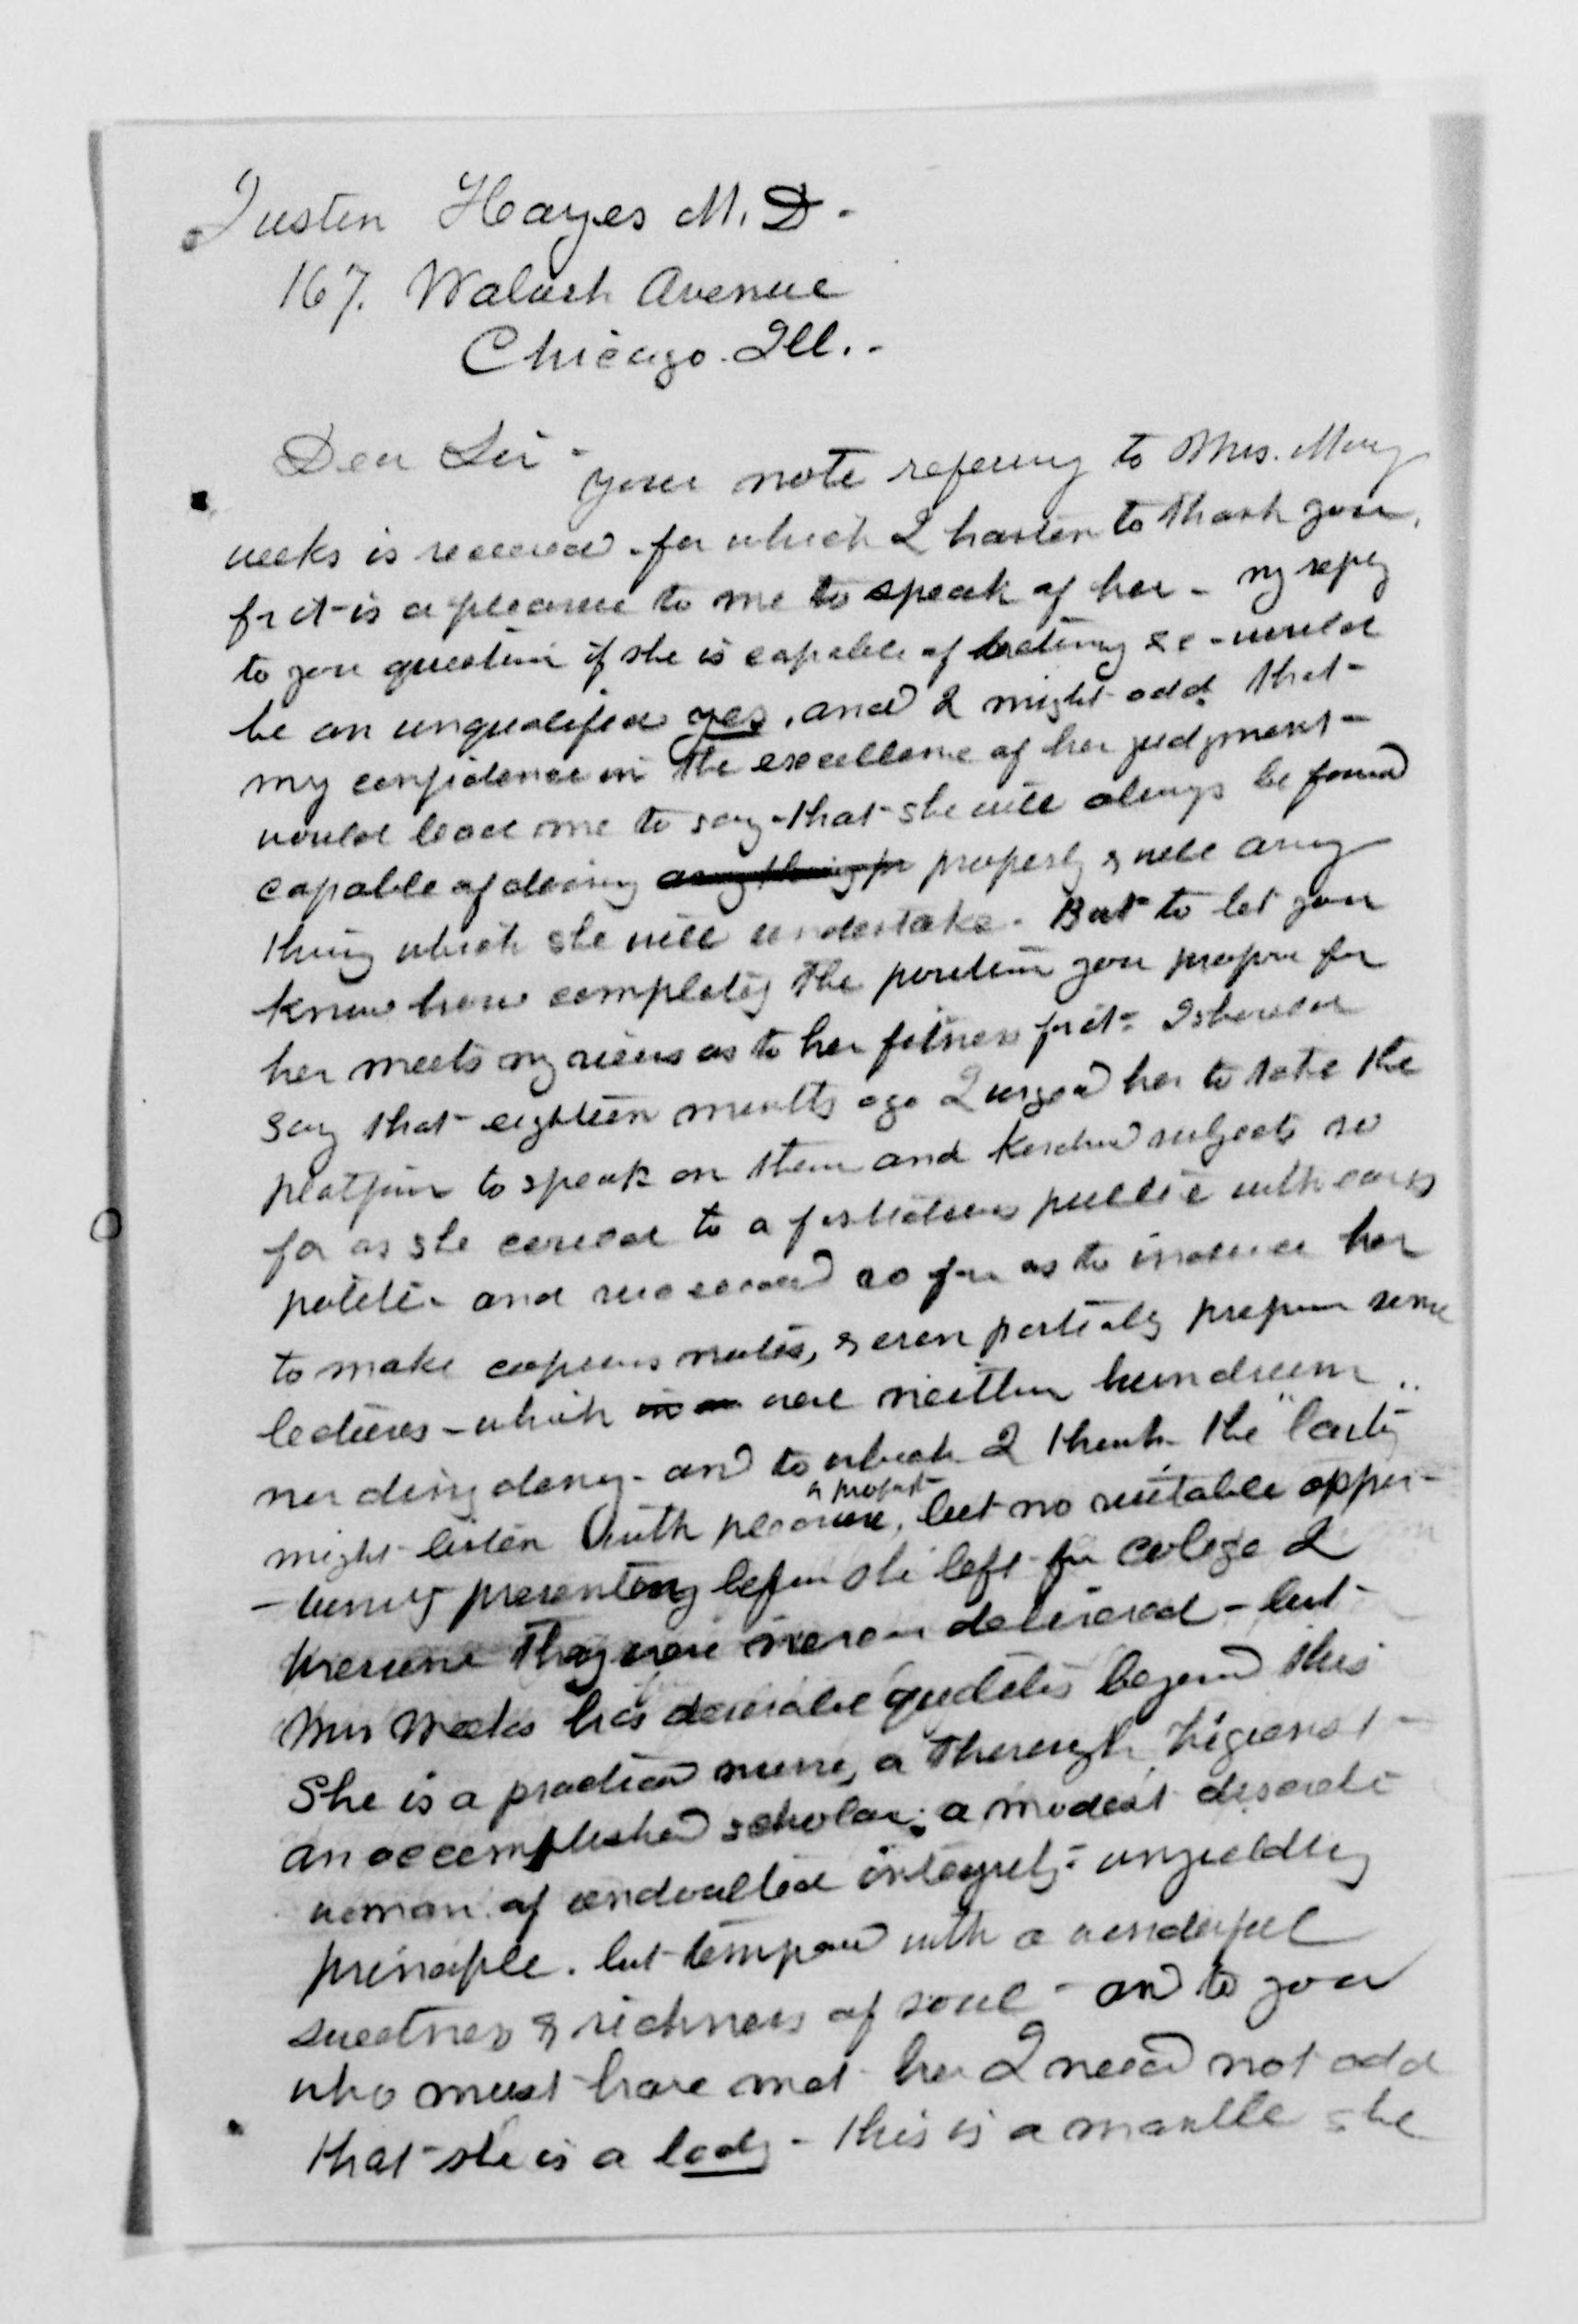 Justin Hayes M.D.
167. Wabash Avenue
Chicago. Ill..
Dear Sir -
your note refering to Mrs. Mary
weeks is received - for which I hasten to thank you,
for it is a pleasure to me to speak of her - my reply
to your question if she is capable of lecturing &c - would
be an unqualified yes, and I might add that
my confidence in the excellence of her judgment
would lead me to say - that she will always be found
capable of doing anything pr properly & well any
thing which she will undertake. But to let you
know how completely the position you propose for
her meets my views as to her fitness for it - I should
say that eighteen months ago I urged her to take the
platform to speak on them and kindred subjects so
far as she could to a fastidious public with ears
polite - and succeeded so far as to induce her
to make copious notes, & even partially prepare some
lectures - which were neither humdrum
nor ding dong - and to which I think the "laity"
might listen with pleasure, & profit but no suitable oppor-
- tunity presenting before she left for college I
presume they were never delivered - but
Mrs Weeks has desirable qualities beyond this
She is a practical nurse, a thorough higienist -
an accomplished scholar; a modest discrete
woman of undoubted integrity - unyielding
principle. but tempered with a wonderful
sweetness & richness of soul - and to you
who must have met her I need not add
that she is a lady - this is a mantle she